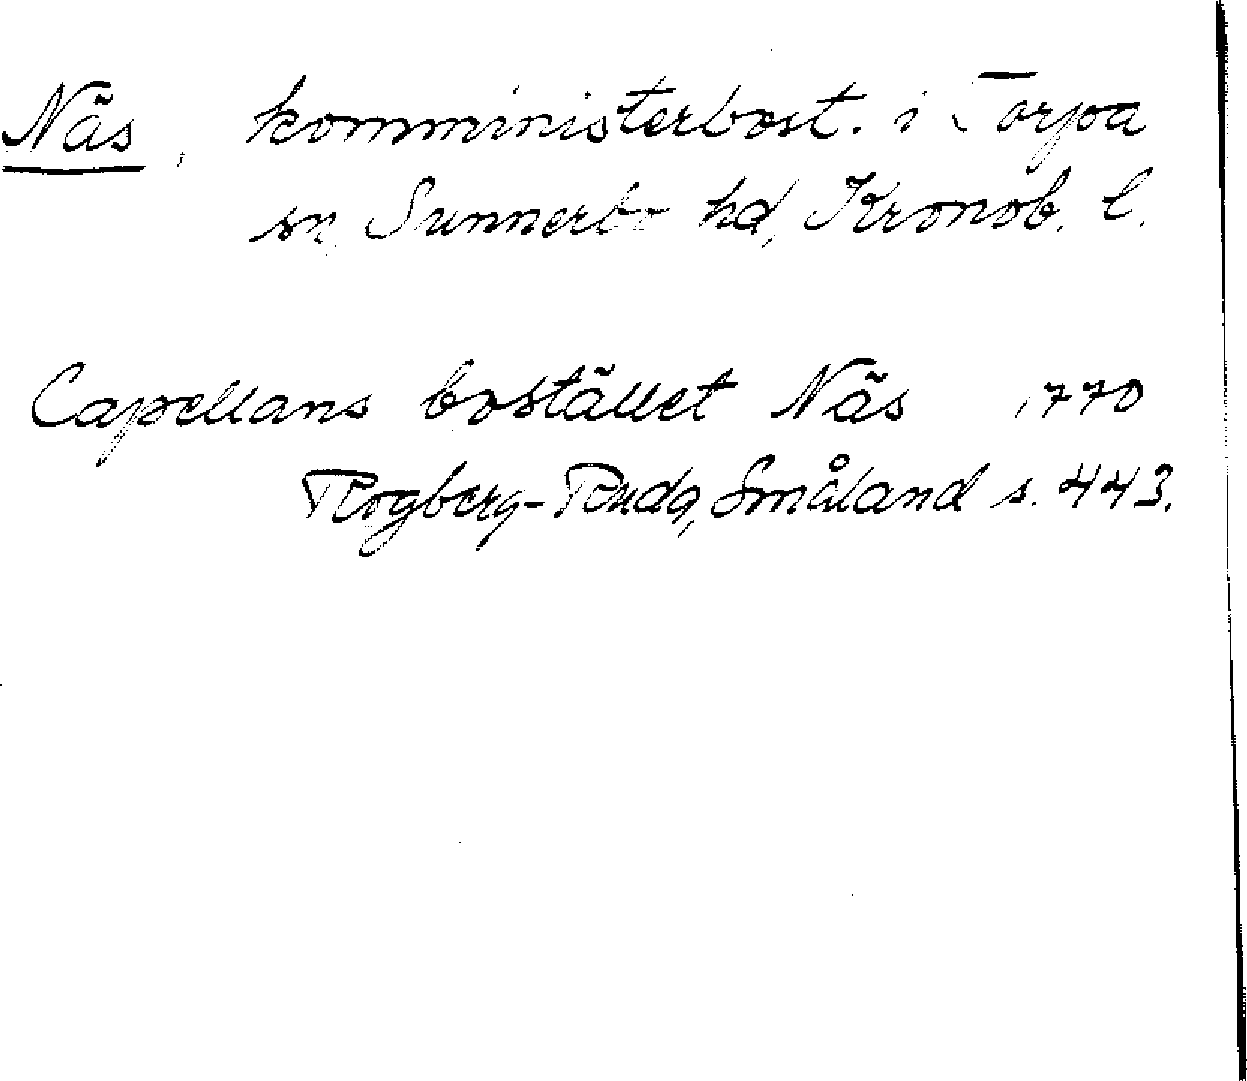 Näs, komministerbost. i Torpa
sn, Sunnerbo hd, Kronob. l.
Capellans bostället Näs 1770
Rogberg-Ruda, Småland s. 443.